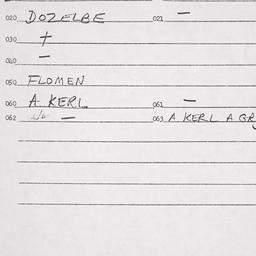 020 DOZELBE 021 —
030 +
040 —
050 FLOMEN
060 A KERL 061 —
062 — 063 A KERL A GR